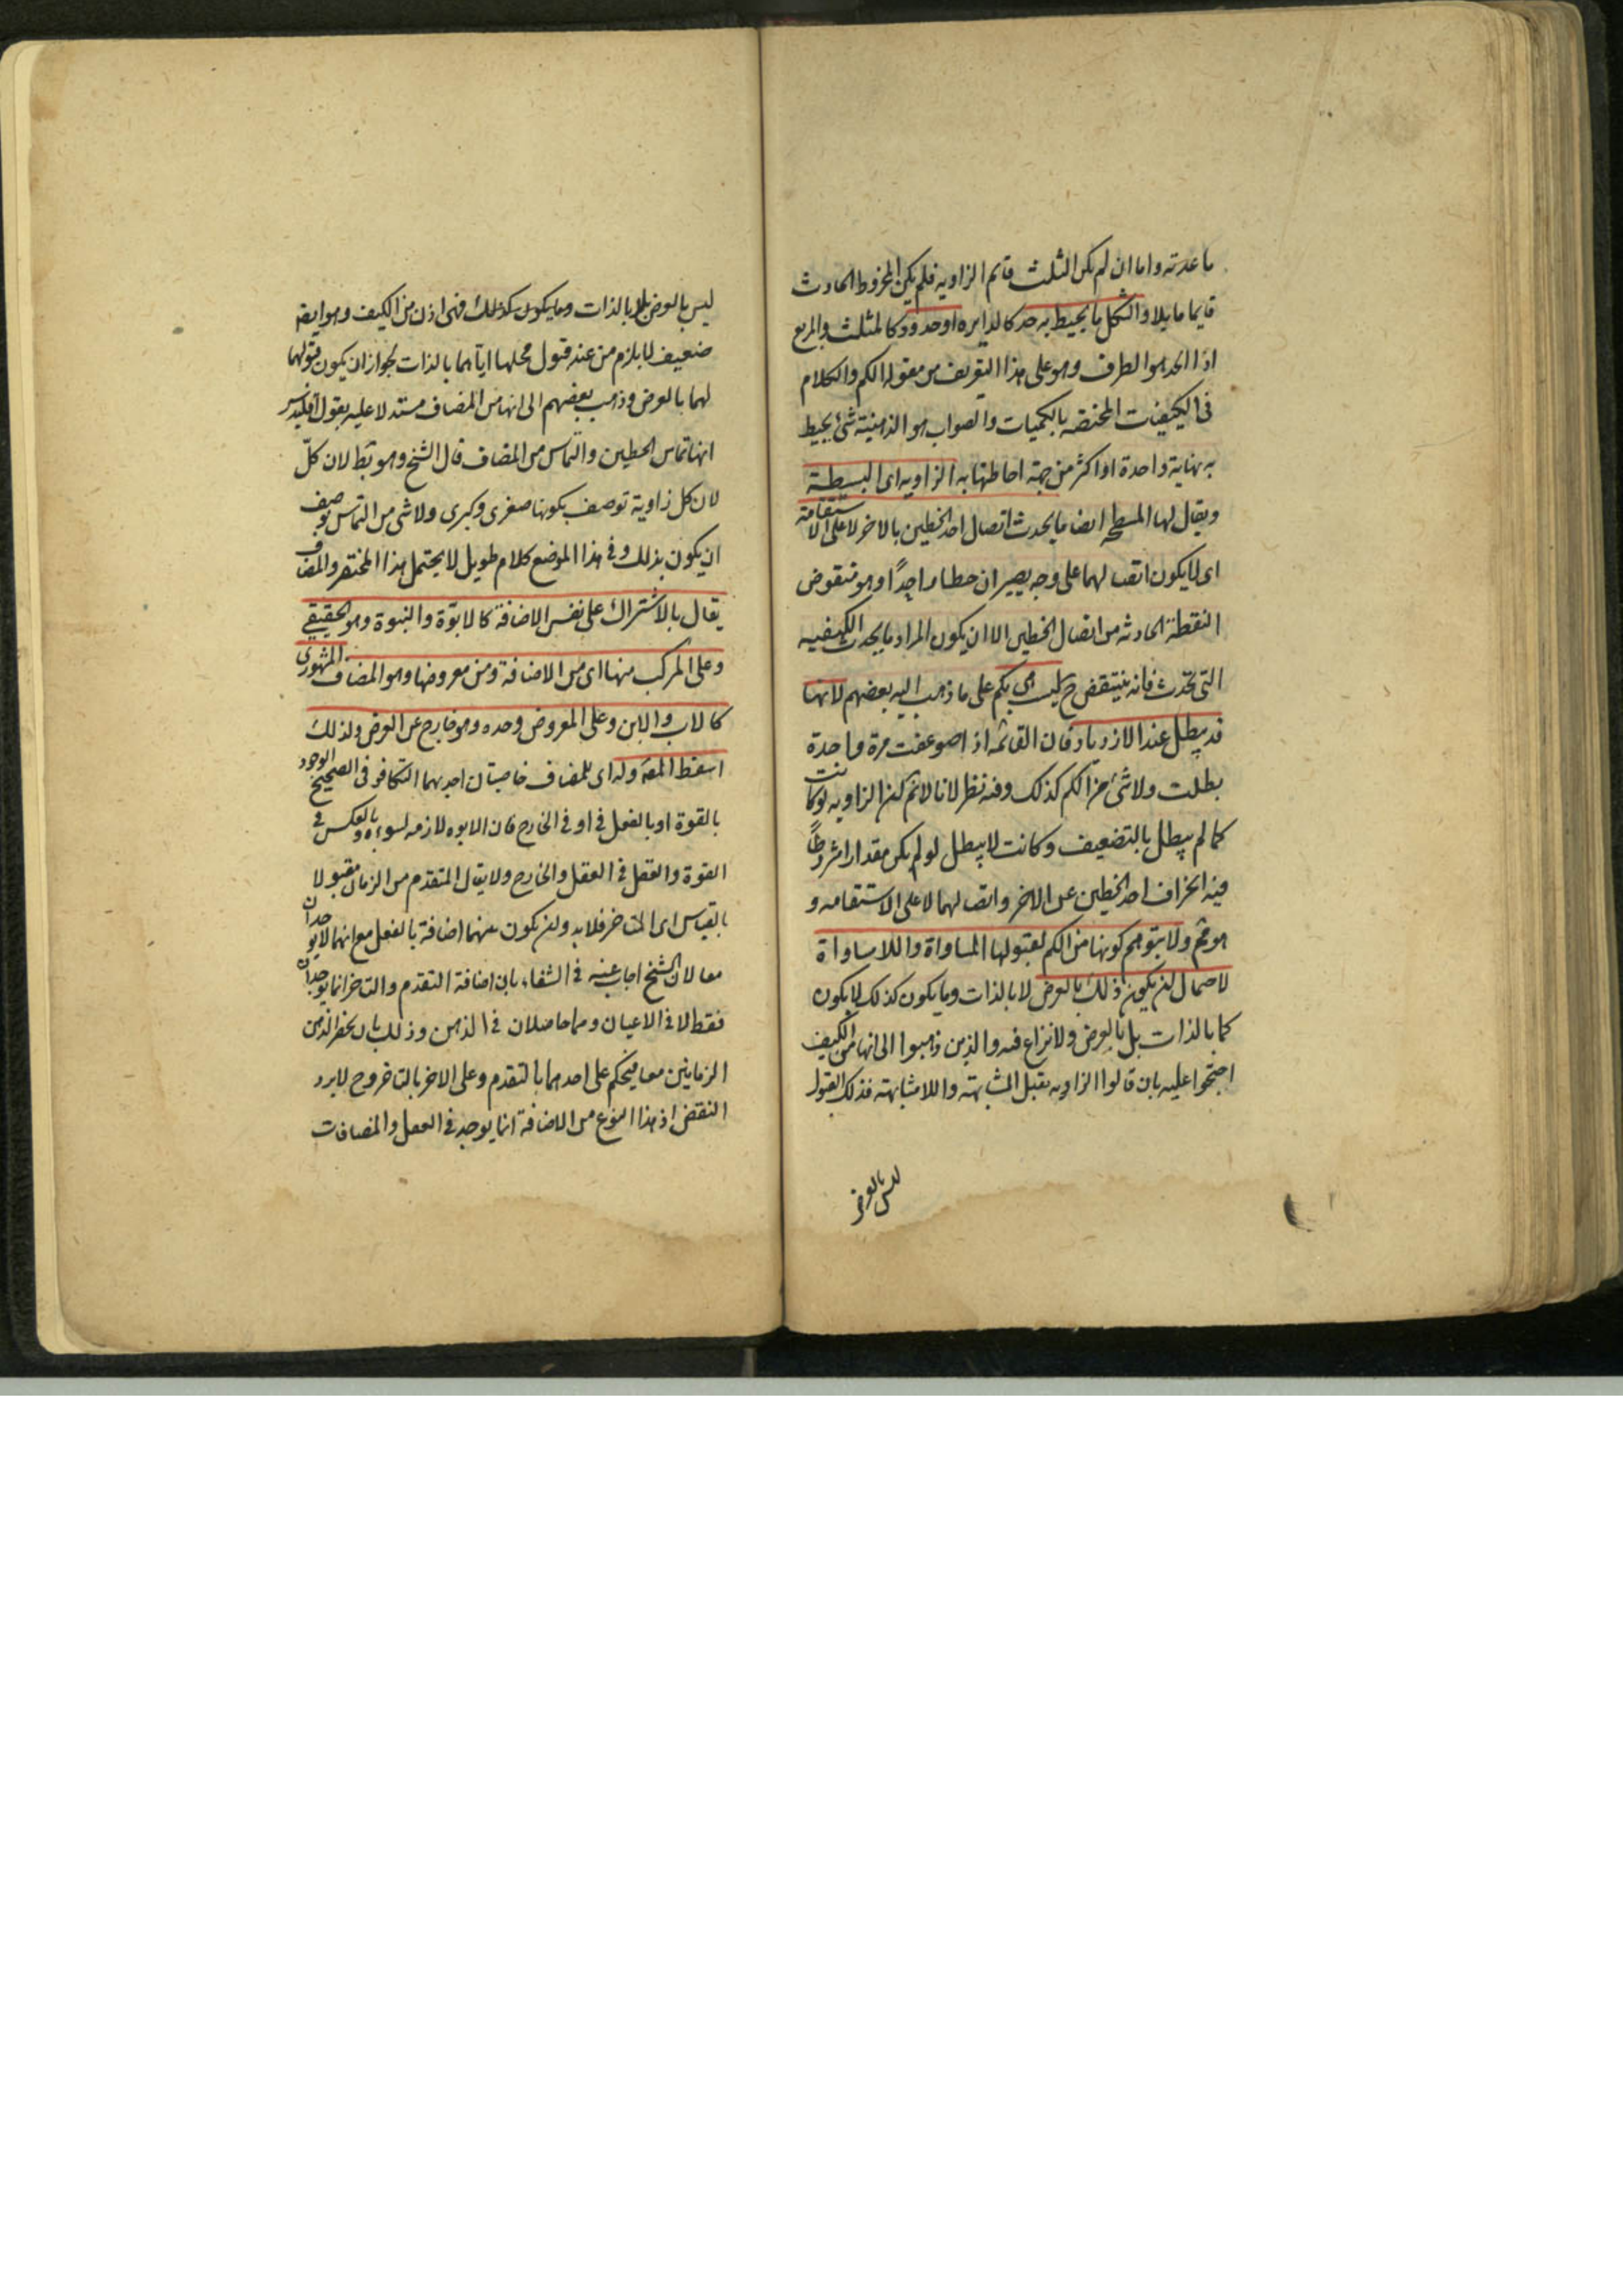 ما عدته واما ان لم يكن المثلث قائم الزاويه فلم يكن المخروط الحادث
قايما مايلا والشكل ما يحيط به حد كالدايره او حدود كالمثلث والمربع
اذا الحد هو الطرف وهو على هذا التعريف من مقوله الكم والكلام
فى الكيفيات المختصه بالكميات والصواب هو الذ هيئة شئ يحيط
به نهاية واحدة او اكثر من جهة احاطتها به الزاويه اى البسيطة
ويقال لها المسطحه ايضا ما يحدث اتصال احد الخطين بالاخر لا على الاستقامة
اى لا يكون اتصالهما على وجه يصيران خطا واحدًا وهو منقوض
النقطة الحادثه من اتصال الخطين الا ان يكون المراد ما يحدث الكيفيه
التى تحدث فانه ينتقض ح ليست هى بكم على ما ذهب اليه بعضهم لانها
قد يبطل عند الازدياد فان القائمه اذا ضوعفت مرة واحدة
بطلت ولا شئ من الكم كذلك وفيه نظر لانا لا نم لن الزاويه لو كانت
كما لم يبطل بالتضعيف وكانت لا يبطل لو لم يكن مقدارا مشروطًا
فيه انحراف احد الخطين عن الاخر واتصالهما لا على الاستقامه و
هو مم ولا يتوهم كونها من الكم لقبولها المساواة واللامساواة
لاحتمال لن يكون ذلك بالعرض لا بالذات وما يكون كذلك لا يكون
كما بالذات بل بالعرض ولا نزاع فيه والذين ذهبوا الى انها من الكيف
احتجوا عليه بان قالوا الزاويه يقبل المشابهة واللامشابهة فذلك القبول
ليس بالعرض
ليس بالعرض بل بالذات وما يكون كذلك فهى اذن من الكيف وهو ايضا
ضعيف لا يلزم من عند قبول محلها اياهما بالذات لجواز ان يكون قبولها
لهما بالعرض وذهب بعضهم الى انها من المضاف مستدلا عليه بقول اقليدس
انها تماس الخطين والتماس من المضاف قال الشيخ وهو بط لان كلّ
لان كل زاوية توصف بكونها صغرى وكبرى ولا شئ من التماس يوصف
ان يكون بذلك وفى هذا الموضع كلام طويل لا يحتمل هذا المختصر والمضاف
يقال بالاشتراك على نفس الاضافة كالابوّة والبنوة وهو الحقيقى
وعلى المركب منها اى من الاضافة ومن معروضها وهو المضاف المشهورى
كالاب والابن وعلى المعروض وحده وهو خارج عن العرض ولذلك
اسقط المصه وله اى للمضاف خاصيتان احديهما التكافو فى الصحيح الوجود
بالقوة او بالفعل فى او فى الخارج فان الابوه لازمه لسوءه وبالعكس فى
القوة والفعل فى العقل والخارج ولا يقال المتقدم من الزمان مقبولا
بالقياس اى المتاخر فلابد ولن يكون بينهما اضافة بالفعل مع انهما لا يوجدان
معا لان الشيخ اجاب عنه فى الشفاء بان اضافة التقدم والتاخر انما يوجدان
فقط لا فى الاعيان وهما حاصلان فى الذهن وذلك بان يحضر الذهن
الزمانين معا فيحكم على احدهما بالتقدم وعلى الاخر بالتاخر وح لا يرد
النقض اذ هذا النوع من الاضافة انما يوجد فى العقل والمضافات